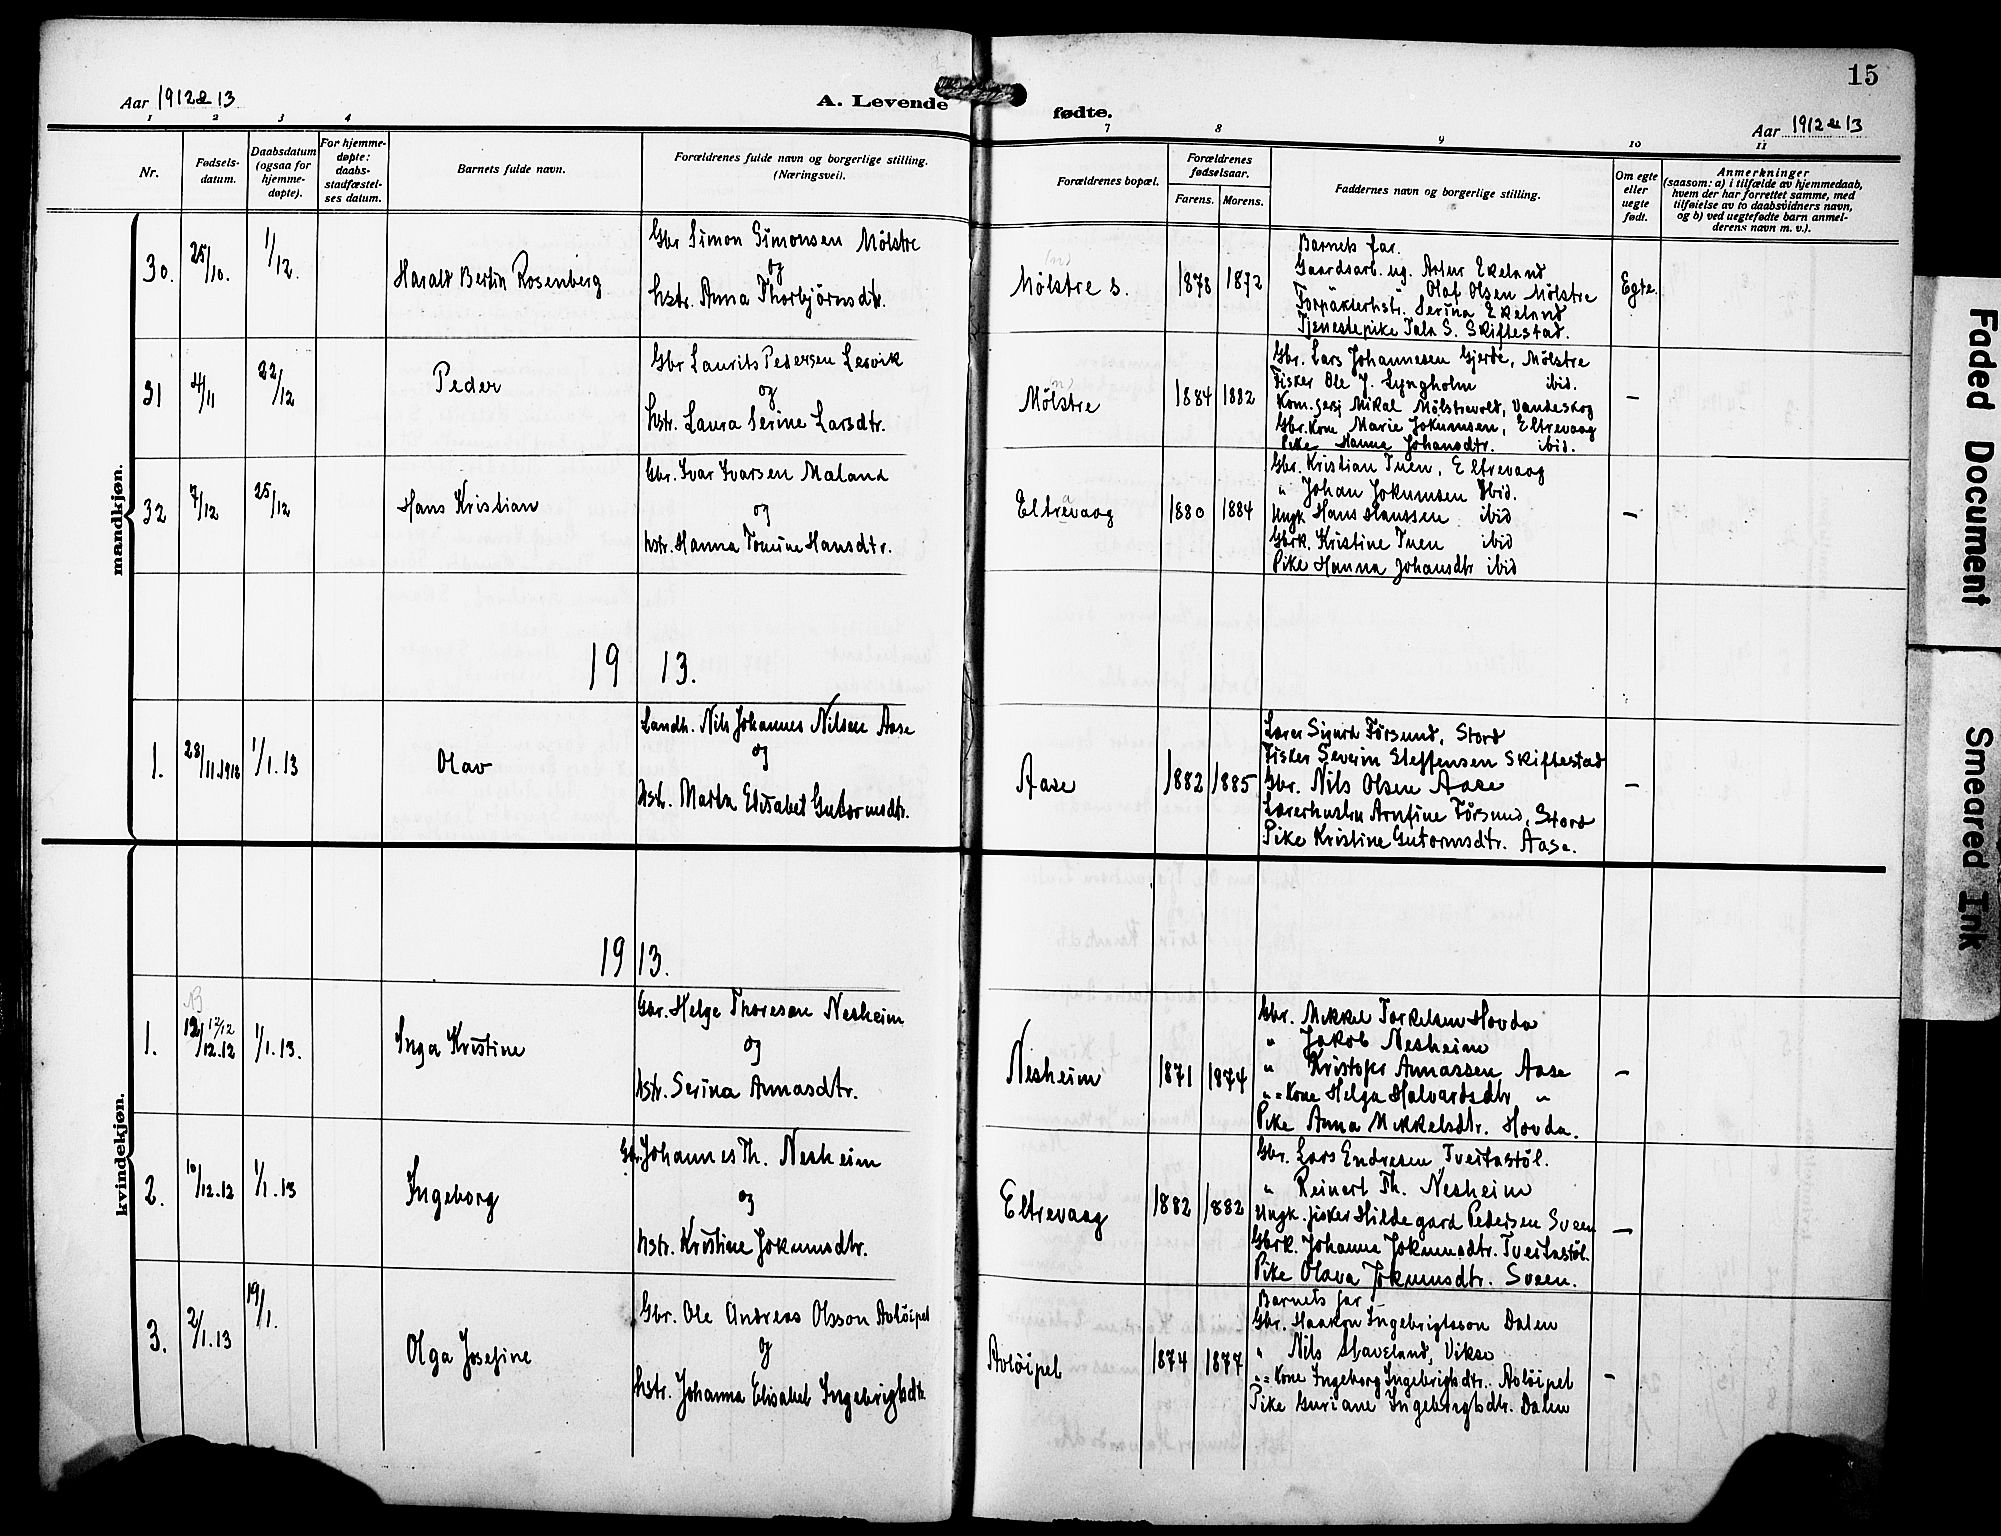 15
Aar 1912 & 13
A. Levende fødte.
Aar 1912 & 13
1 2 3 4 7 8 9 10 11
Nr.
Fødsels-
datum.
Daabsdatum
(ogsaa for
hjemme-
døpte).
For hjemme-
døpte:
daabs-
stadfæstel-
ses datum.
Barnets fulde navn.
Forældrenes fulde navn og borgerlige stilling.
(Næringsvei).
Forældrenes bopæl.
Forældrenes
fødselsaar.
Farens. Morens.
Faddernes navn og borgerlige stilling.
Om egte
eller
uegte
født.
Anmerkninger
(saasom: a) i tilfælde av hjemmedaab,
hvem der har forrettet samme, med
tilføielse av to daabsvidners navn,
og b) ved uegtefødte barn anmel-
derens navn m. v.).
mandkjøn.
30. 25/10. 1/12.
Haralt Bertin Rosenberg
Gbr Simon Simonsen Mölstre
og
hstr. Anna Thorbjörnsdtr.
(n)
Mölstre s. 1878 1872
Barnets far.
Gaardsarb. ug. Artur Ekeland
Olaf Olsen Mölstre
Forpakterhstr. Serina Ekeland
Tjenestepike Tala S. Skiftestad.
Egte.
31 4/11 22/12
Peder
Gbr Laurits Pedersen Lesvik
og
hstr. Laura Serine Larsdtr.
(n)
Mölstre 1884 1882
Gbr. Lars Johannesen Gjerde, Mölstre
Fisker Ole J. Lyngholm ibid.
Kom. Mikal Mölstrevold, Vandeskog
Gbr. Kone Marie Jokumsen, Eltrevaag
Pike Hanna Johansdtr. ibid.
—
32 7/12 25/12
Hans Kristian
Gbr. Ivar Ivarsen Maland
og
hstr. Hanna Tomine Hansdtr.
Eltrevaag 1880 1884
Gbr. Kristian Tuen, Eltrevaag
" Johan Jokumsen Ibid.
Ungk Hans Hanssen ibid
Gbrk. Kristine Tuen ibid
Pike Hanna Johansdtr ibid
—
1913.
1. 28/11.1912 1/1.13
Olav
Landh. Nils Johannes Nilsen Aase
og
hstr. Marta Elisabet Gutormsdtr.
Aase 1882 1885
Lærer Sigurd Försund, Stord
Fisker Severin Steffensen Skiftestad
Gbr. Nils Olsen Aase
Lærerhustru Arnfine Försund, Stord
Pike Kristine Gutormsdtr. Aase.
—
kvindekjøn.
1913.
1. 12/12.12 12/12 1/1.13.
Inga Kristine
Gbr. Helge Thoresen Nesheim
og
hstr. Serina Annasdtr.
Nesheim 1871 1874
Gbr. Mikkel Torkelsen Hovda
" Jakob Nesheim
" Kristofer Amassen Aase
" = Kone Helga Halvardsdtr "
Pike Anna Mikkelsdtr. Hovda.
—
2. 10/12.12 1/1.13
Ingeborg
Gbr. Johannes Th. Nesheim
og
hstr. Kristine Jokumsdtr.
Eltrevaag 1882 1882
Gbr. Lars Endresen Tveitastöl.
" Reinert Th. Nesheim
Ungk. fisker Hildegard Pedersen Sveen
Gbrk. Johanna Jokumsdtr. Tveitastöl.
Pike Olava Jokumsdtr. Sveen.
—
3. 2/1.13 19/1.
Olga Josefine
Gbr. Ole Andreas Olsson Avlöipet
og
hstr. Johanna Elisabet Ingebrigtsdtr.
Avlöipet 1874 1877
Barnets far
Gbr. Haakon Ingebrigtsson Dalen
" Nils Haveland, Vikse
" = Kone Ingeborg Ingebrigtsdtr. Avlöipet
Pike Guriane Ingebrigtsdtr. Dalen
—
Faded Document
Smeared Ink